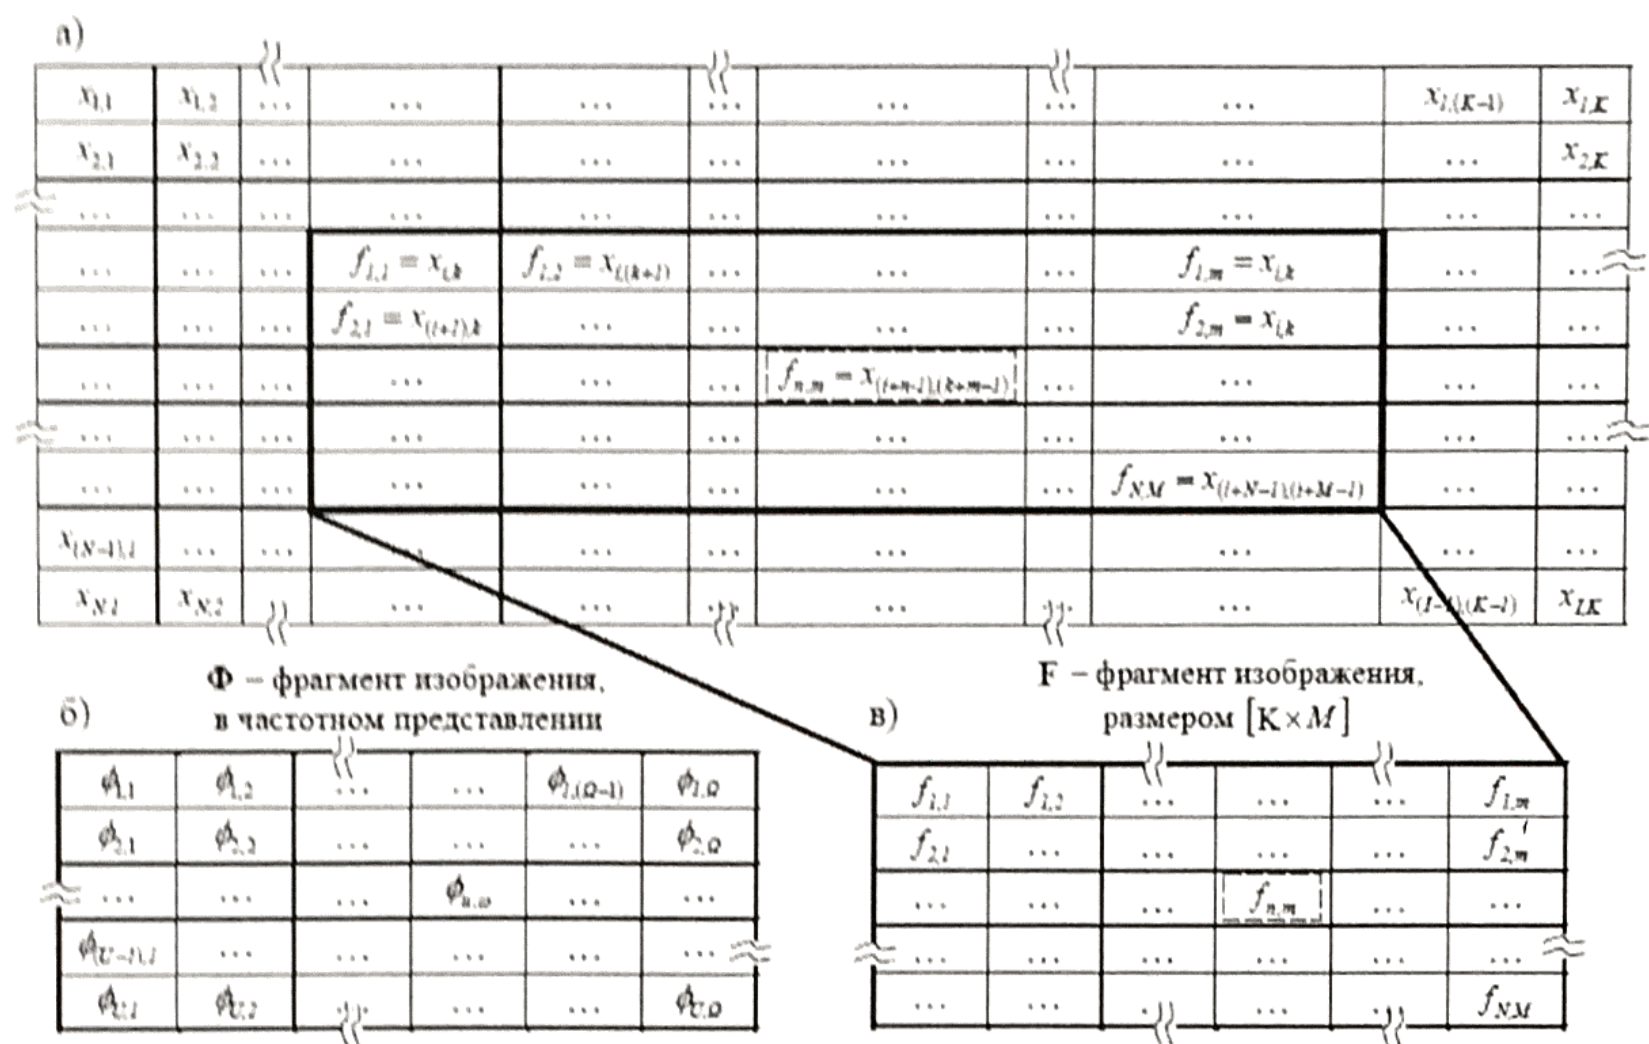 а)
x₁,₁ x₁,₂ ... ... ... ... ... ... ... x_{1,(K-1)} x_{1,K}
x₂,₁ x₂,₂ ... ... ... ... ... ... ... ... x_{2,K}
... ... ... ... ... ... ... ... ... ... ...
... ... ... f_{1,1} = x_{i,k} f_{1,2} = x_{i,(k+1)} ... ... ... f_{1,m} = x_{i,k} ... ...
... ... ... f_{2,1} = x_{(i+1),k} ... ... ... ... f_{2,m} = x_{i,k} ... ...
... ... ... ... ... ... f_{n,m} = x_{(i+n-1),(k+m-1)} ... ... ... ...
... ... ... ... ... ... ... ... ... ... ...
... ... ... ... ... ... ... ... f_{N,M} = x_{(i+N-1),(i+M-1)} ... ...
x_{(N-1),1} ... ... ... ... ... ... ... ... ... ...
x_{N,1} x_{N,2} ... ... ... ... ... ... x_{(I-1),(K-1)} x_{I,K}
Ф – фрагмент изображения,
в частотном представлении
б)
ϕ_{1,1} ϕ_{1,2} ... ... ϕ_{1,(Ω-1)} ϕ_{1,Ω}
ϕ_{2,1} ϕ_{2,2} ... ... ... ϕ_{2,Ω}
... ... ... ϕ_{u,ω} ... ...
ϕ_{(U-1),1} ... ... ... ... ...
ϕ_{U,1} ϕ_{U,2} ... ... ... ϕ_{U,Ω}
F – фрагмент изображения,
размером [K×M]
в)
f_{1,1} f_{1,2} ... ... ... f_{1,m}
f_{2,1} ... ... ... ... f_{2,m}
... ... ... f_{n,m} ... ...
... ... ... ... ... ...
... ... ... ... ... f_{N,M}